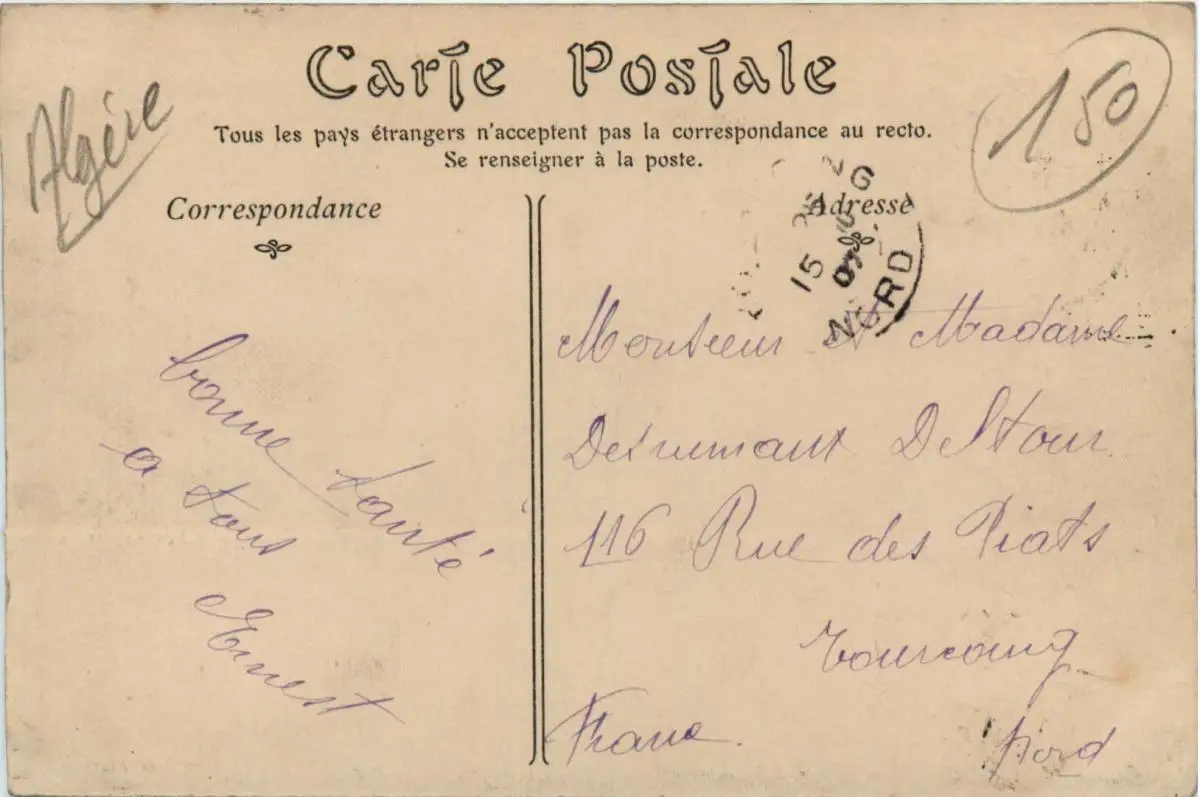 Carte Postale
Tous les pays étrangers n'acceptent pas la correspondance au recto.
Se renseigner à la poste.
Algérie
150
Correspondance
Adresse
15
07
NORD
bonne santé
a tous
Ernest
Monsieur et Madame
Desrumaux Deltour
116 Rue des Piats
Tourcoing
France
Nord